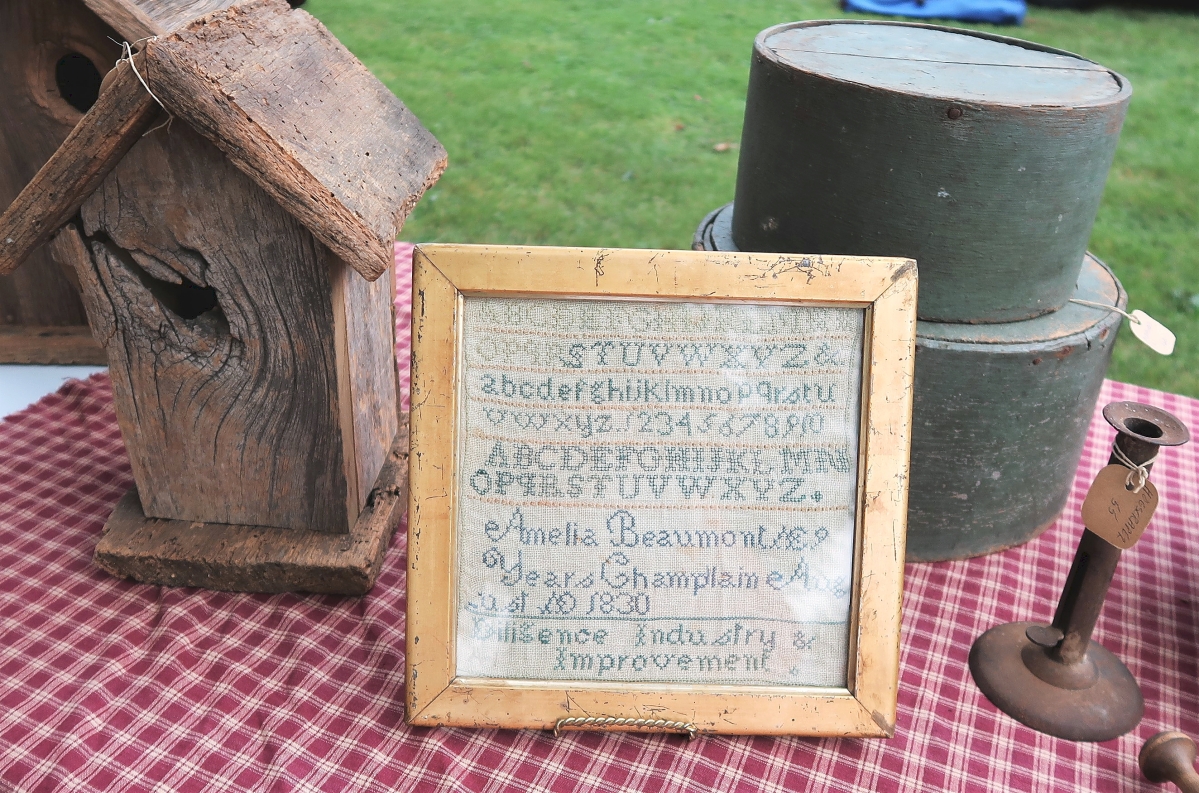 ABCDEFGHIJKLMN
OPQRSTUVWXYZ&
abcdefghijklmnopqrstu
vwxyz.12345678910
ABCDEFGHIJKLMN
OPQRSTUVWXYZ.
Amelia Beaumont. AE 9
Years Champlain Aug
ust 10 1830
Dilisence Industry &
Improvement
55